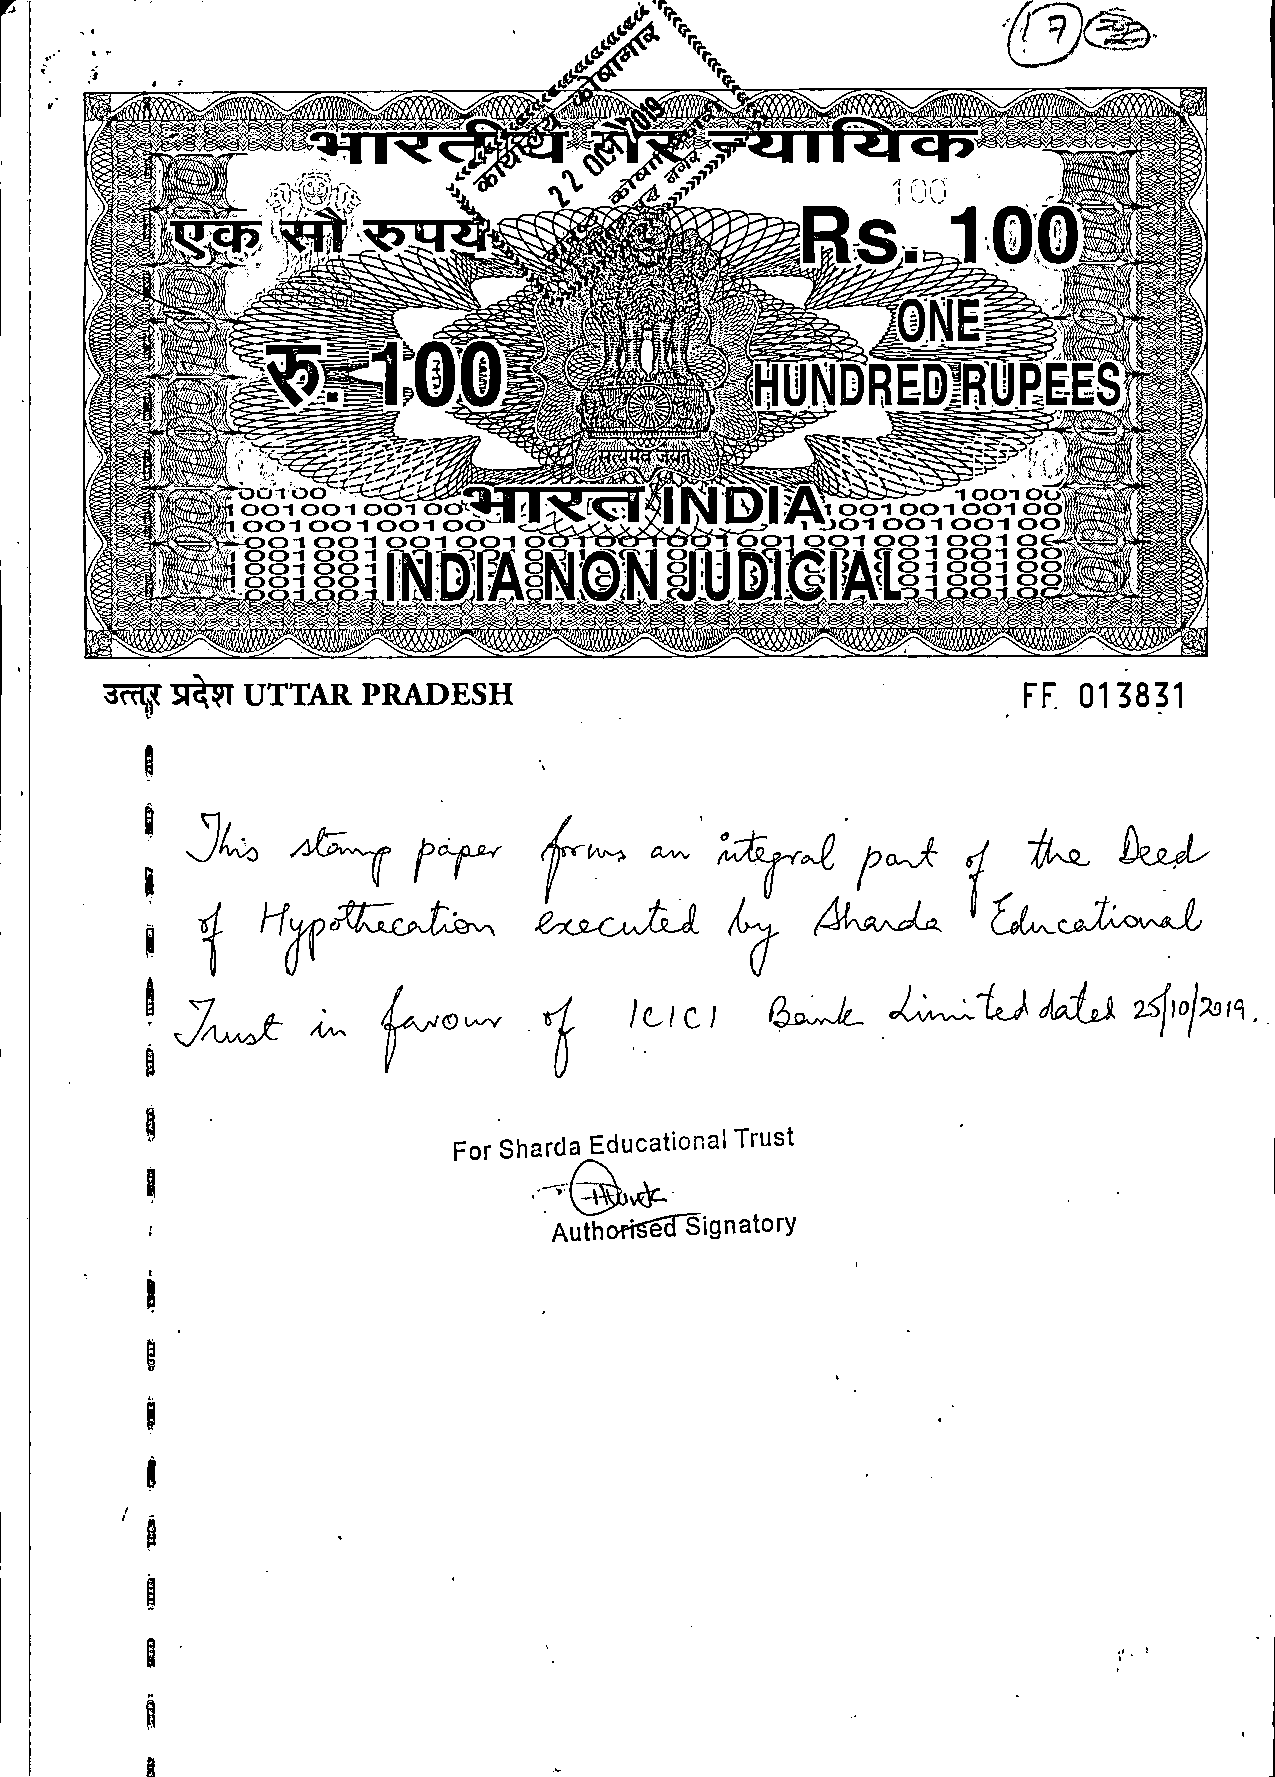 17
कार्यालय कोषागार
22 OCT 2019
भारतीय गैर न्यायिक
100
एक सौ रुपये
Rs. 100
ONE
रु. 100
HUNDRED RUPEES
सत्यमेव जयते
भारत INDIA
INDIA NON JUDICIAL
उत्तर प्रदेश UTTAR PRADESH
FF 013831
This stamp paper forms an integral part of the Deed
of Hypothecation executed by Sharda Educational
Trust in favour of ICICI Bank Limited dated 25/10/2019.
For Sharda Educational Trust
Authorised Signatory